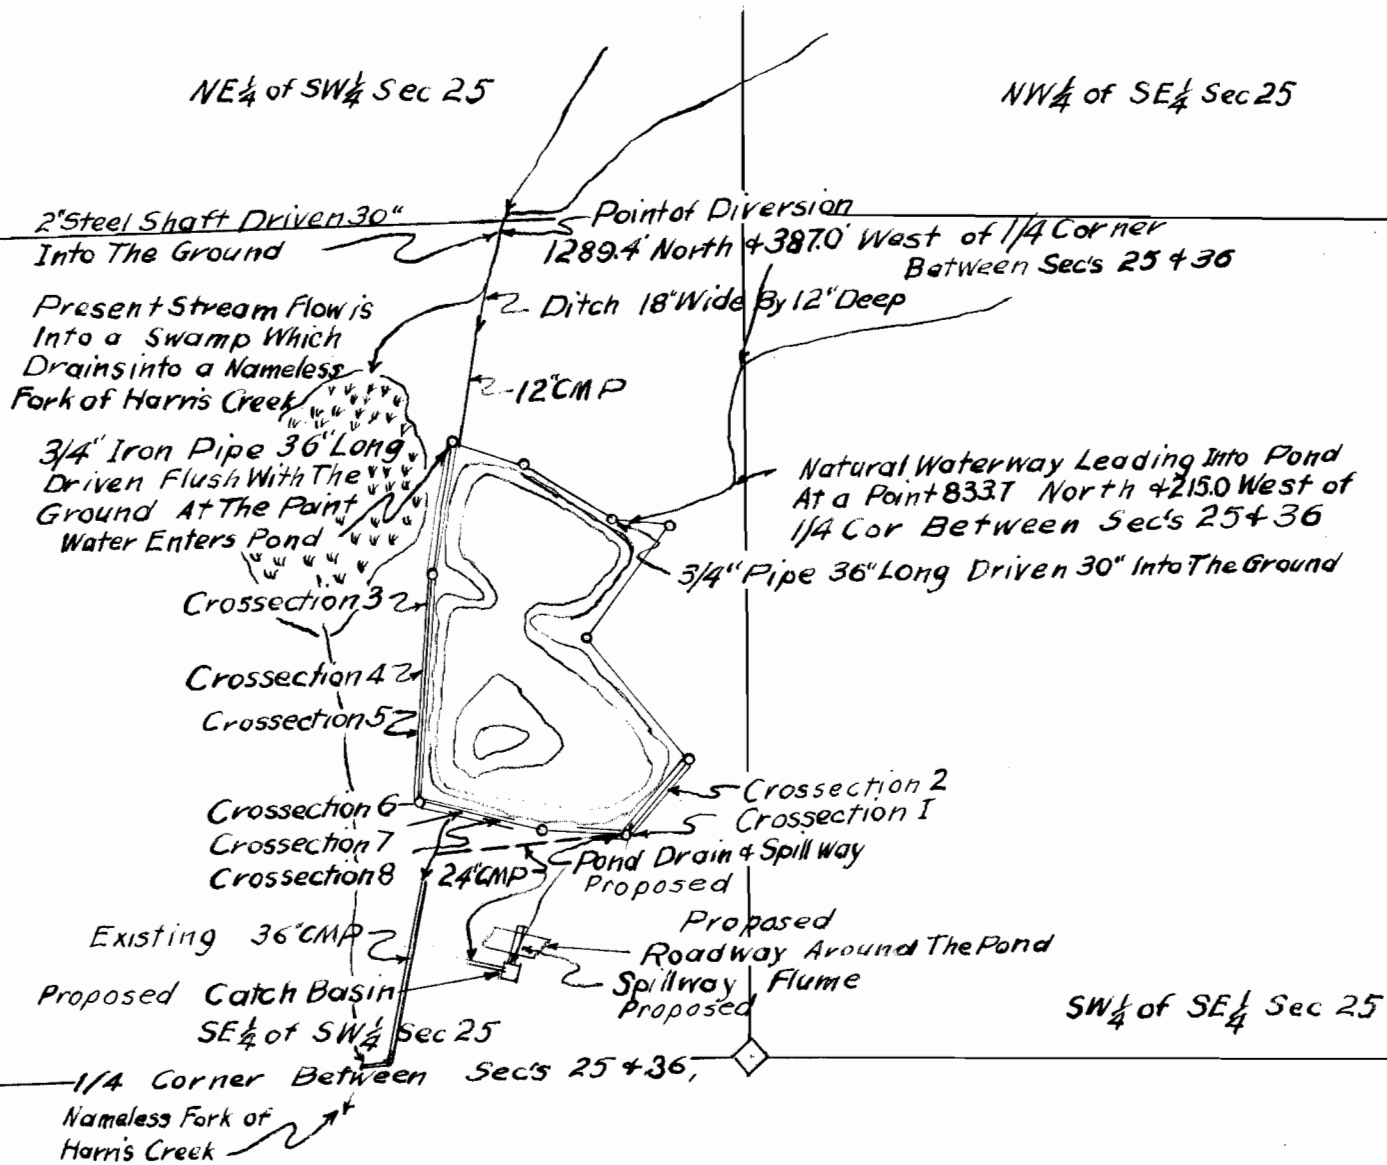 NE¼ of SW¼ Sec 25
NW¼ of SE¼ Sec 25
2" Steel Shaft Driven 30"
Into The Ground
Point of Diversion
1289.4' North & 387.0' West of 1/4 Corner
Between Sec's 25 & 36
Ditch 18" Wide By 12" Deep
Present Stream Flow is
Into a Swamp Which
Drains into a Nameless
Fork of Harris Creek
12" CMP
3/4" Iron Pipe 36" Long
Driven Flush With The
Ground At The Point
Water Enters Pond
Natural Waterway Leading Into Pond
At a Point 833.7 North & 215.0 West of
1/4 Cor Between Sec's 25 & 36
3/4" Pipe 36" Long Driven 30" Into The Ground
Crossection 3
Crossection 4
Crossection 5
Crossection 6
Crossection 7
Crossection 8
Crossection 2
Crossection 1
24" CMP
Pond Drain & Spillway
Proposed
Existing 36" CMP
Proposed
Roadway Around The Pond
Spillway Flume
Proposed
Proposed Catch Basin
SE¼ of SW¼ Sec 25
SW¼ of SE¼ Sec 25
1/4 Corner Between Sec's 25 & 36,
Nameless Fork of
Harris Creek